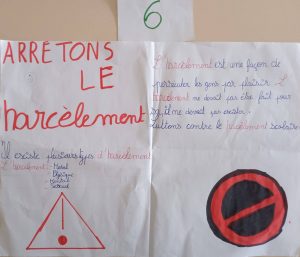 6
ARRÊTONS
LE
harcèlement
Il existe plusieurs types d'harcèlement
L'harcèlement: - Moral
- Physique
- Sexuel
L'harcèlement est une façon de
persécuter les gens par plaisir. L'
harcèlement ne devrait pas être fait pour
il ne devrait pas exister.
luttons contre le harcèlement scolaire
!